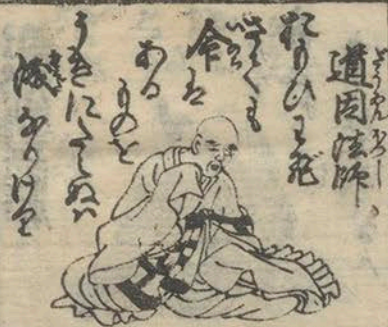 道因法師
おもひわび
さても
命は
ある
ものを
うきにたへぬハ
涙なりけり